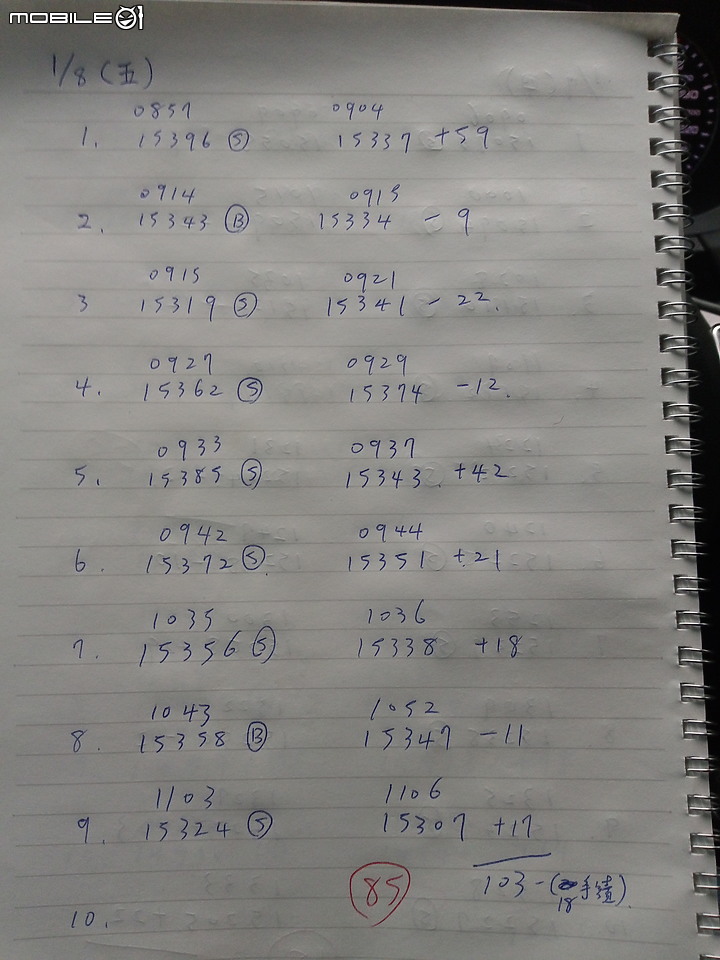 MOBILE01
1/8 (五)
0857 0904
1. 15396 Ⓢ 15337 +59
0914 0915
2. 15343 Ⓑ 15334 - 9
0915 0921
3 15319 Ⓢ 15341 - 22.
0927 0929
4. 15362 Ⓢ 15374 -12.
0933 0937
5. 15385 Ⓢ 15343. +42
0942 0944
6. 15372 Ⓢ 15351 +21
1035 1036
7. 15356 Ⓢ 15338 +18
1043 1052
8. 15358 Ⓑ 15347 -11
1103 1106
9. 15324 Ⓢ 15307 +17
85 103 - (手續).
18
10.